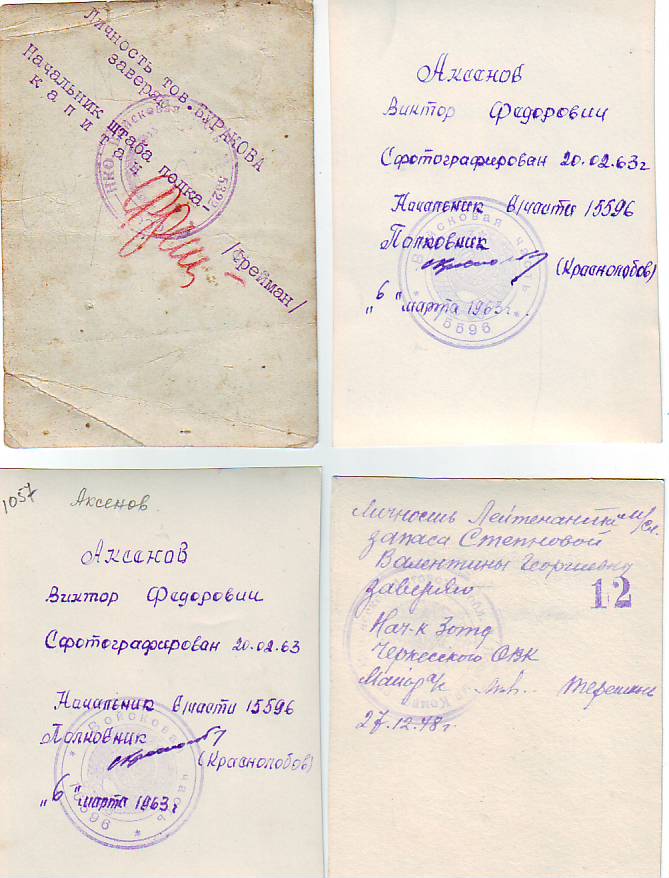 Личность тов. БУРАКОВА
заверяю
Начальник штаба полка-
капитан
/Фрейман/
НКО Войсковая
Аксенов
Виктор Федорович
Сфотографирован 20.02.63г
Начальник в/части 15596
Полковник
(Краснолобов)
"6" марта 1963г.
Войсковая часть
15596
1057 Аксенов
Аксенов
Виктор Федорович
Сфотографирован 20.02.63
Начальник в/части 15596
Полковник
(Краснолобов)
"6" марта 1963г
Войсковая часть
15596
Личность Лейтенанта м/сл.
запаса Степновой
Валентины Георгиевны
заверяю
12
Нач-к 3отд
Черкесского ОВК
Майор а/с
27.12.48г.